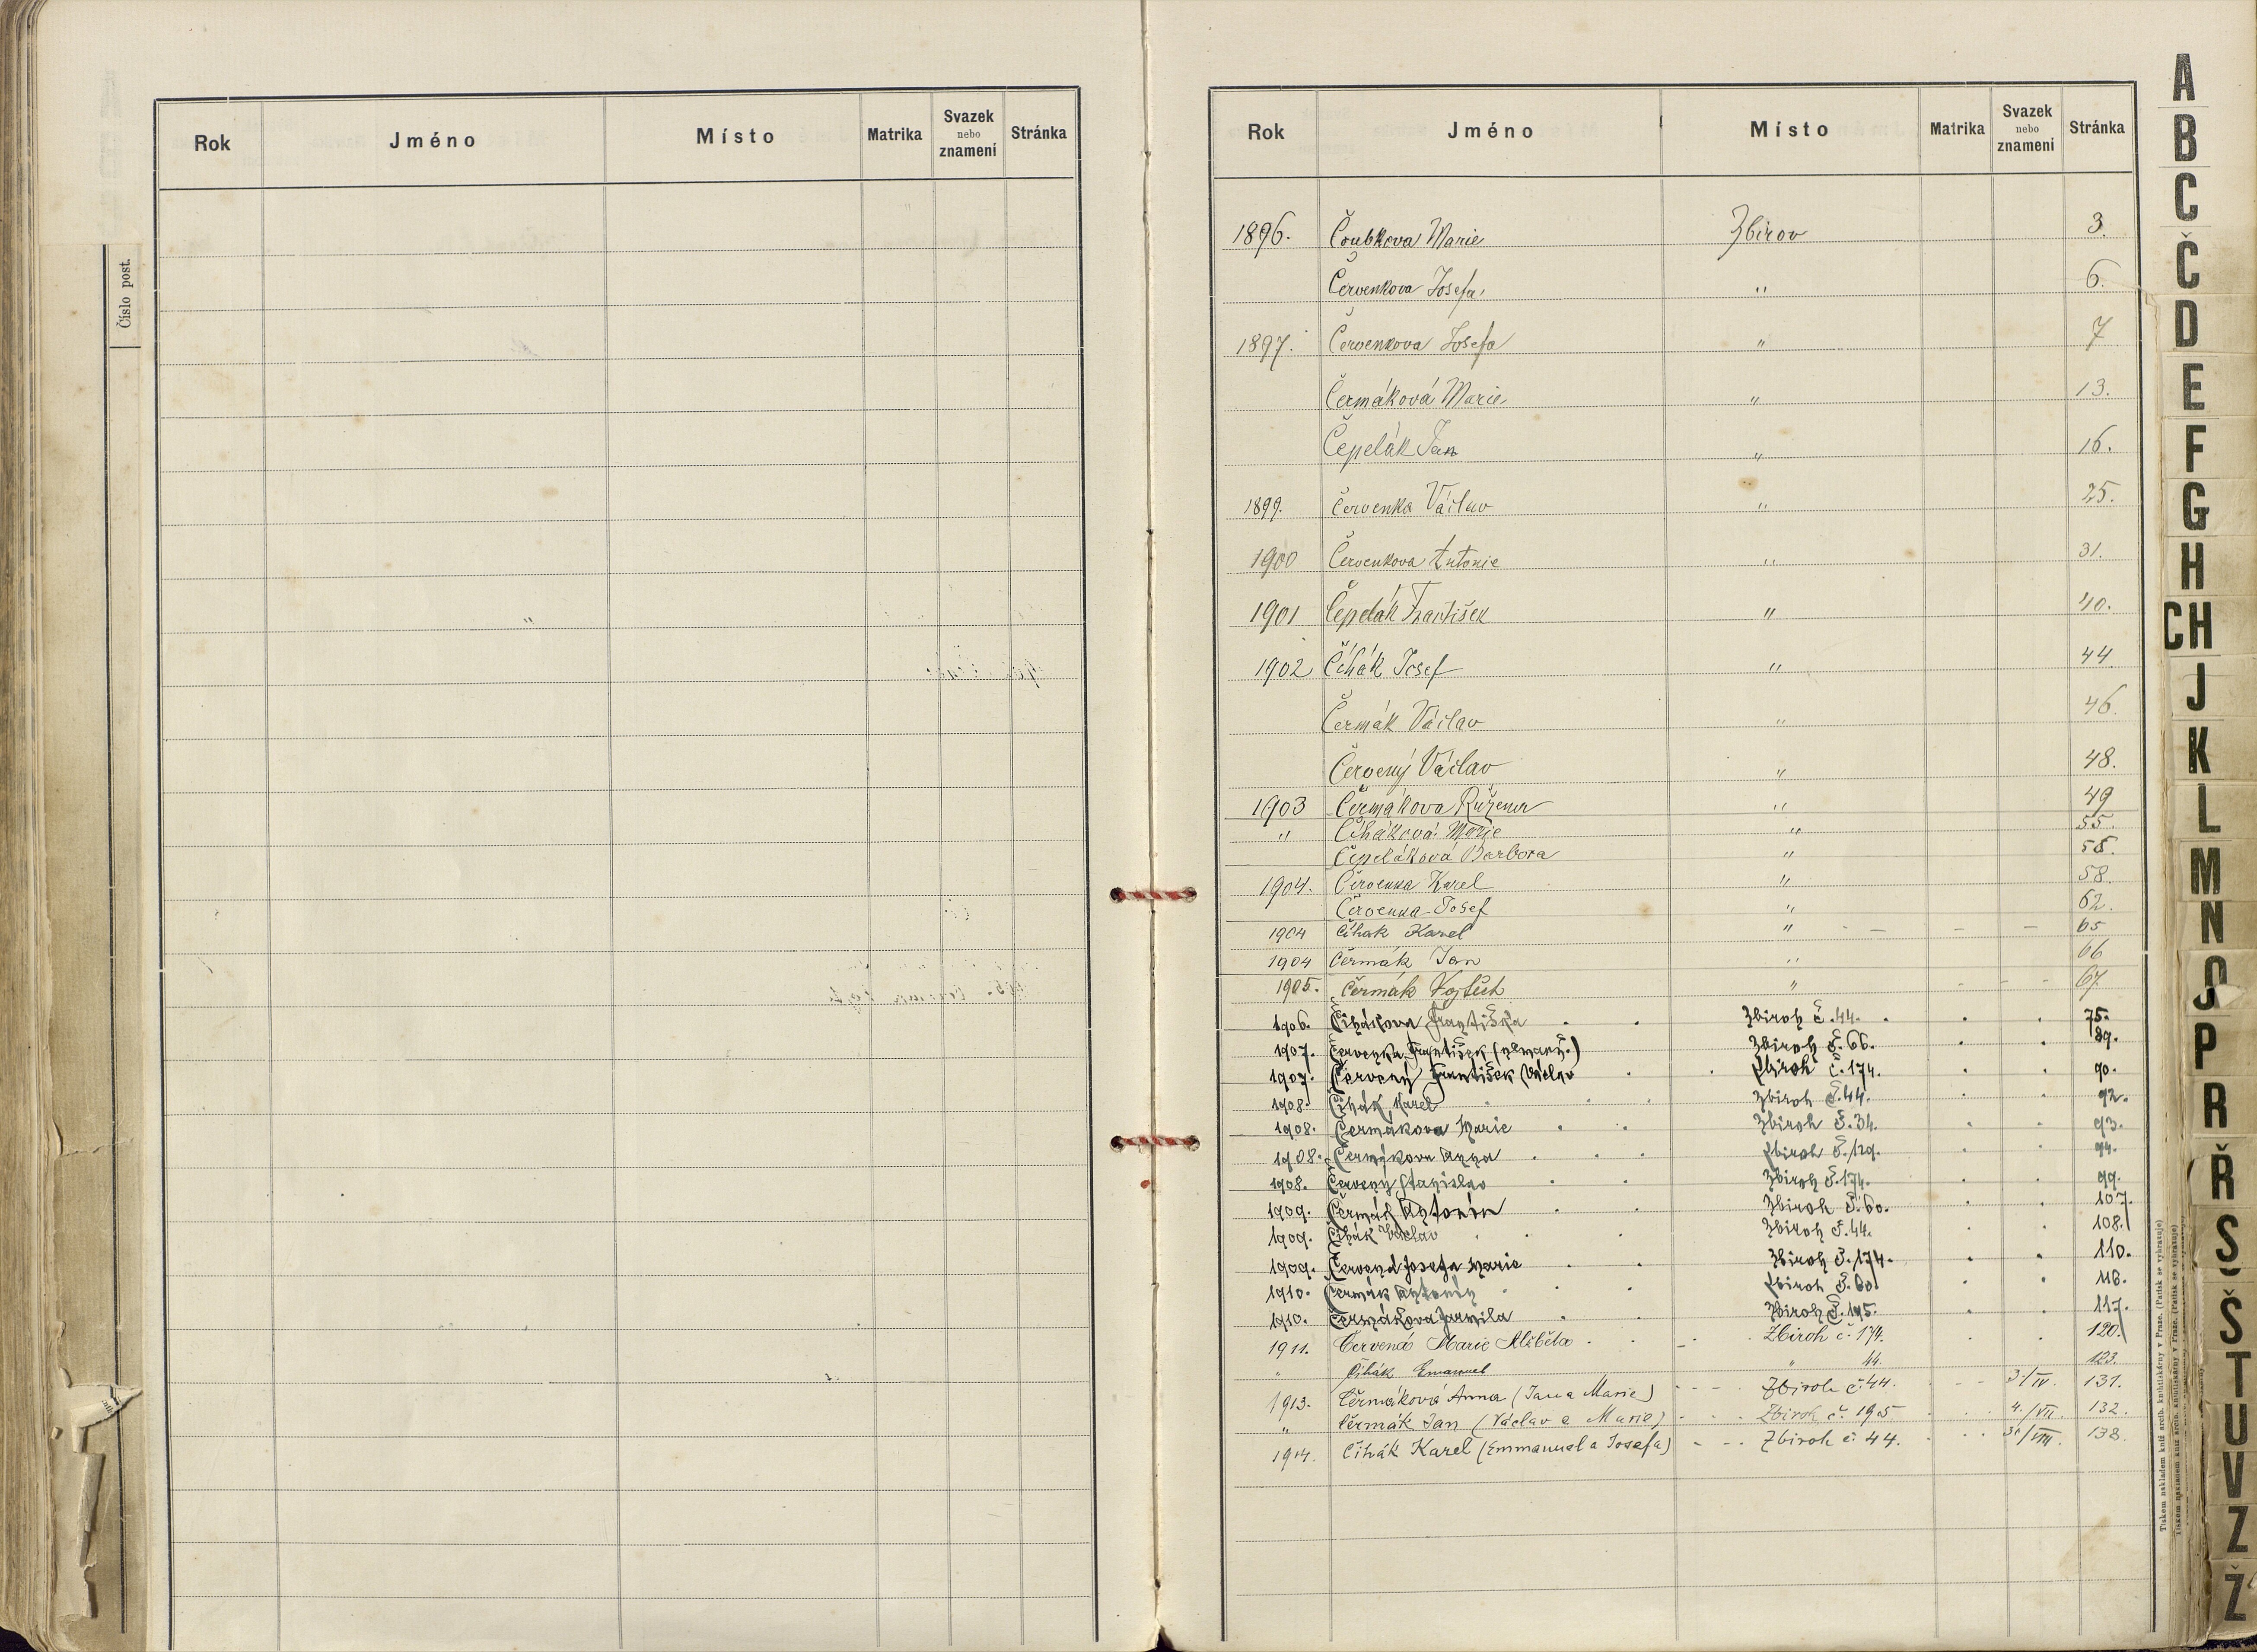 Číslo post.
Rok Jméno Místo Matrika Svazek nebo znamení Stránka
Rok Jméno Místo Matrika Svazek nebo znamení Stránka
1896. Čoubkova Marie Zbirov 3.
Červenkova Josefa " 6.
1897. Červenkova Josefa " 7
Čermáková Marie " 13.
Čepelák Jan " 16.
1899. Červenka Václav " 25.
1900 Červenkova Antonie " 31.
1901 Čepelák František " 40.
1902 Čihák Josef " 44.
Čermák Václav " 46.
Červený Václav " 48.
1903 Čermákova Růžena " 49
" Čiháková Marie " 55.
Čepeláková Barbora "
1904. Červenka Karel " 58.
Červenka Josef " 62.
1904 Čihak Karel " 65
1904 Čermák Jan " 66
1905. Čermák Vojtěch " 67
1906. Čihákova Františka Zbiroh č. 44. 75.
1907. Červenka František (nemanž.) Zbiroh č. 66. 89.
1907. Červený František Václav Zbiroh č. 174. 90.
1908. Čihák Karel Zbiroh č. 44. 92.
1908. Čermákova Marie Zbiroh č. 34. 93.
1908. Čermákova Anna Zbiroh č. 129. 94.
1908. Červený Stanislav Zbiroh č. 174. 99.
1909. Čermák Antonín Zbiroh č. 60. 107.
1909. Čihák Václav Zbiroh č. 44. 108.
1909. Červená Josefa Marie Zbiroh č. 174. 110.
1910. Čermák Antonín Zbiroh č. 60. 116.
1910. Čermákova Jarmila Zbiroh č. 195. 117.
1911. Červená Marie Alžběta Zbiroh č. 174. 120.
" Čihák Emanuel " 44. 123.
1913. Čermáková Anna (Jan a Marie) Zbiroh č. 44. 131.
" Čermák Jan (Václav a Marie) Zbiroh č. 195 4./VII. 132.
1914. Čihák Karel (Emmanuel a Josefa) Zbiroh č. 44. 138.
A
B
C
Č
D
E
F
G
H
CH
J
K
L
M
N
O
P
R
Ř
S
Š
T
U
V
Z
Ž